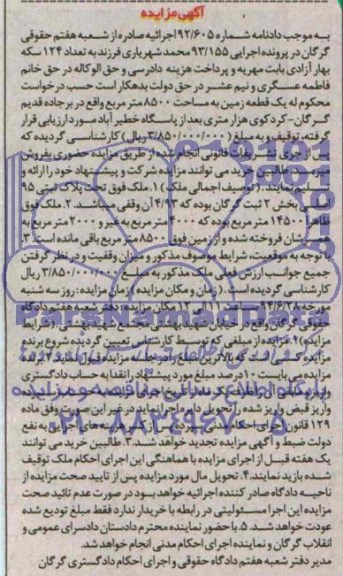 آگهی مزایده
به موجب دادنامه شماره ۹۲/۶۰۵ اجرائیه صادره از شعبه هفتم حقوقی
گرگان در پرونده اجرایی ۹۳/۱۵۵ محمد شهریاری فرزند به تعداد ۱۲۴ سکه
بهار آزادی بابت مهریه و پرداخت هزینه دادرسی و حق الوکاله در حق خانم
فاطمه عسگری و نیم عشر در حق دولت بدهکار است حسب درخواست
محکوم له یک قطعه زمین به مساحت ۸۵۰۰ متر مربع واقع در برجاده قدیم
گرگان - کردکوی هزار متری بعد از پاسگاه خطیر آباد مورد ارزیابی قرار
گرفته، توقیف و به مبلغ (۳/۸۵۰/۰۰۰/۰۰۰) کارشناسی گردیده که
پس از جری تشریفات قانونی انجام شده از طریق مزایده حضوری بفروش
میرسد. طالبین خرید می توانند مزایده شرکت و پیشنهاد خود را ارائه و
تسلیم نمایند. (توصیف اجمالی ملک) ۱. ملک فوق تحت پلاک ثبتی ۹۵
بخش ۲ ثبت گرگان بوده که ۴/۹۳ آن وقفی میباشد. ۲. ملک فوق
ظاهرا ۱۴۵۰۰ متر مربع بوده که ۴۰۰۰ متر مربع به غیر و ۲۰۰۰ متر مربع به
فروخته شده و از زمین فوق ۸۵۰۰ متر مربع باقی مانده است. ۳.
با توجه به موقعیت، شرایط موصوف مذکور و میزان وقفیت و در نظر گرفتن
جمیع جوانب ارزش فعلی ملک مذکور به مبلغ ۳/۸۵۰/۰۰۰/۰۰۰ ریال
کارشناسی گردیده است. (زمان و مکان مزایده) زمان مزایده: روز سه شنبه
مورخه ۹۴/۶/۳۸ الی ۱۲ مکان مزایده: دفتر شعبه هفتم دادگاه
حقوقی گرگان واقع در خیابان شهید بهشتی مجتمع شهید بهشتی. (شرایط
مزایده) ۱. مزایده از مبلغی که توسط کارشناس تعیین گردیده شروع برنده
مزایده کسی است که بالاترین مبلغ را در جلسه مزایده قبول نماید ۲. برنده
مزایده می بایست ۱۰ درصد مبلغ مورد پیشنهاد را نقدا به حساب دادگستری
واریز و قبض واریز شده را تحویل دایره اجرا نماید در غیر این صورت وفق ماده
۱۲۹ قانون اجرای احکام مدنی مبلغ پس از کسر هزینه های اجرایی به نفع
دولت ضبط و آگهی مزایده تجدید خواهد شد. ۳. طالبین خرید می توانند
یک هفته قبل از اجرای مزایده با هماهنگی این اجرای احکام ملک توقیف
شده بازید نمایند. ۴. تحویل مال مورد مزایده پس از تایید صحت مزایده از
ناحیه دادگاه صادر کننده اجرائیه خواهد بود در صورت عدم تائید صحت
مزایده این اجرا مسئولیتی در رابطه با خریدار ندارد فقط مبلغ تودیع شده
عودت خواهد شد. ۵. با حضور نماینده محترم دادستان دادسرای عمومی و
انقلاب گرگان و نماینده اجرای احکام مدنی انجام خواهد شد.
مدیر دفتر شعبه هفتم دادگاه حقوقی و اجرای احکام دادگستری گرگان
ParsNamadData
پایگاه اطلاع رسانی مناقصه و مزایده
۰۲۱-۸۸۳۴۹۶۷۰-۵